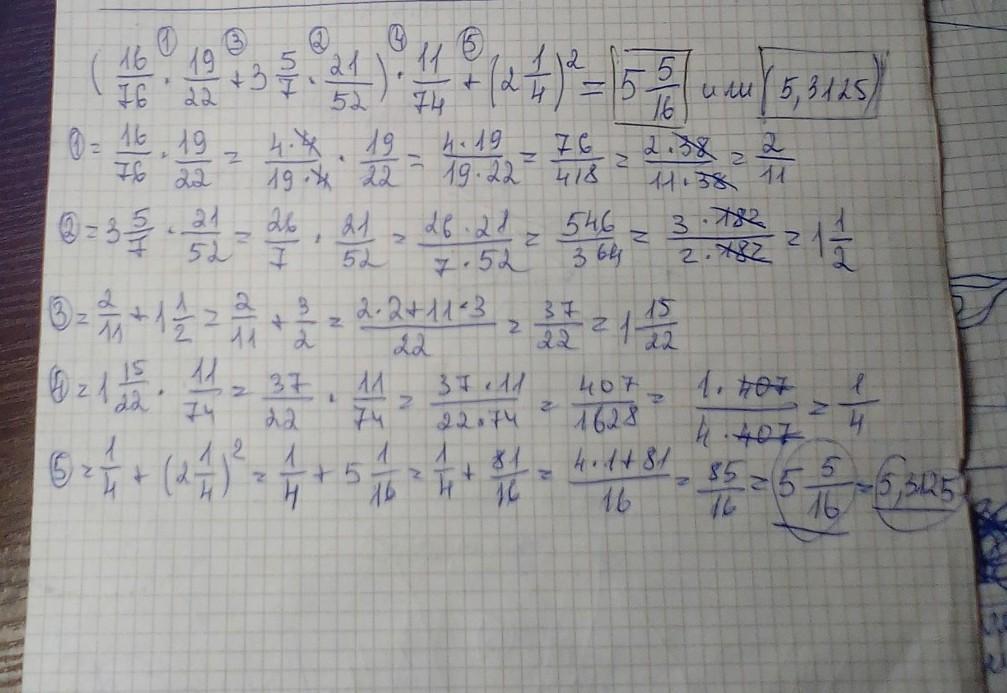 (16/76 · 19/22 + 3 5/7 · 21/52) · 11/74 + (2 1/4)² = 5 5/16 или (5,3125)
① ③ ② ④ ⑤
① = 16/76 · 19/22 = 4·4/19·4 · 19/22 = 4·19/19·22 = 76/418 = 2·38/11·38 = 2/11
② = 3 5/7 · 21/52 = 26/7 · 21/52 = 26·21/7·52 = 546/364 = 3·182/2·182 = 1 1/2
③ = 2/11 + 1 1/2 = 2/11 + 3/2 = 2·2+11·3/22 = 37/22 = 1 15/22
④ = 1 15/22 · 11/74 = 37/22 · 11/74 = 37·11/22·74 = 407/1628 = 1·407/4·407 = 1/4
⑤ = 1/4 + (2 1/4)² = 1/4 + 5 1/16 = 1/4 + 81/16 = 4·1+81/16 = 85/16 = 5 5/16 = 5,3125